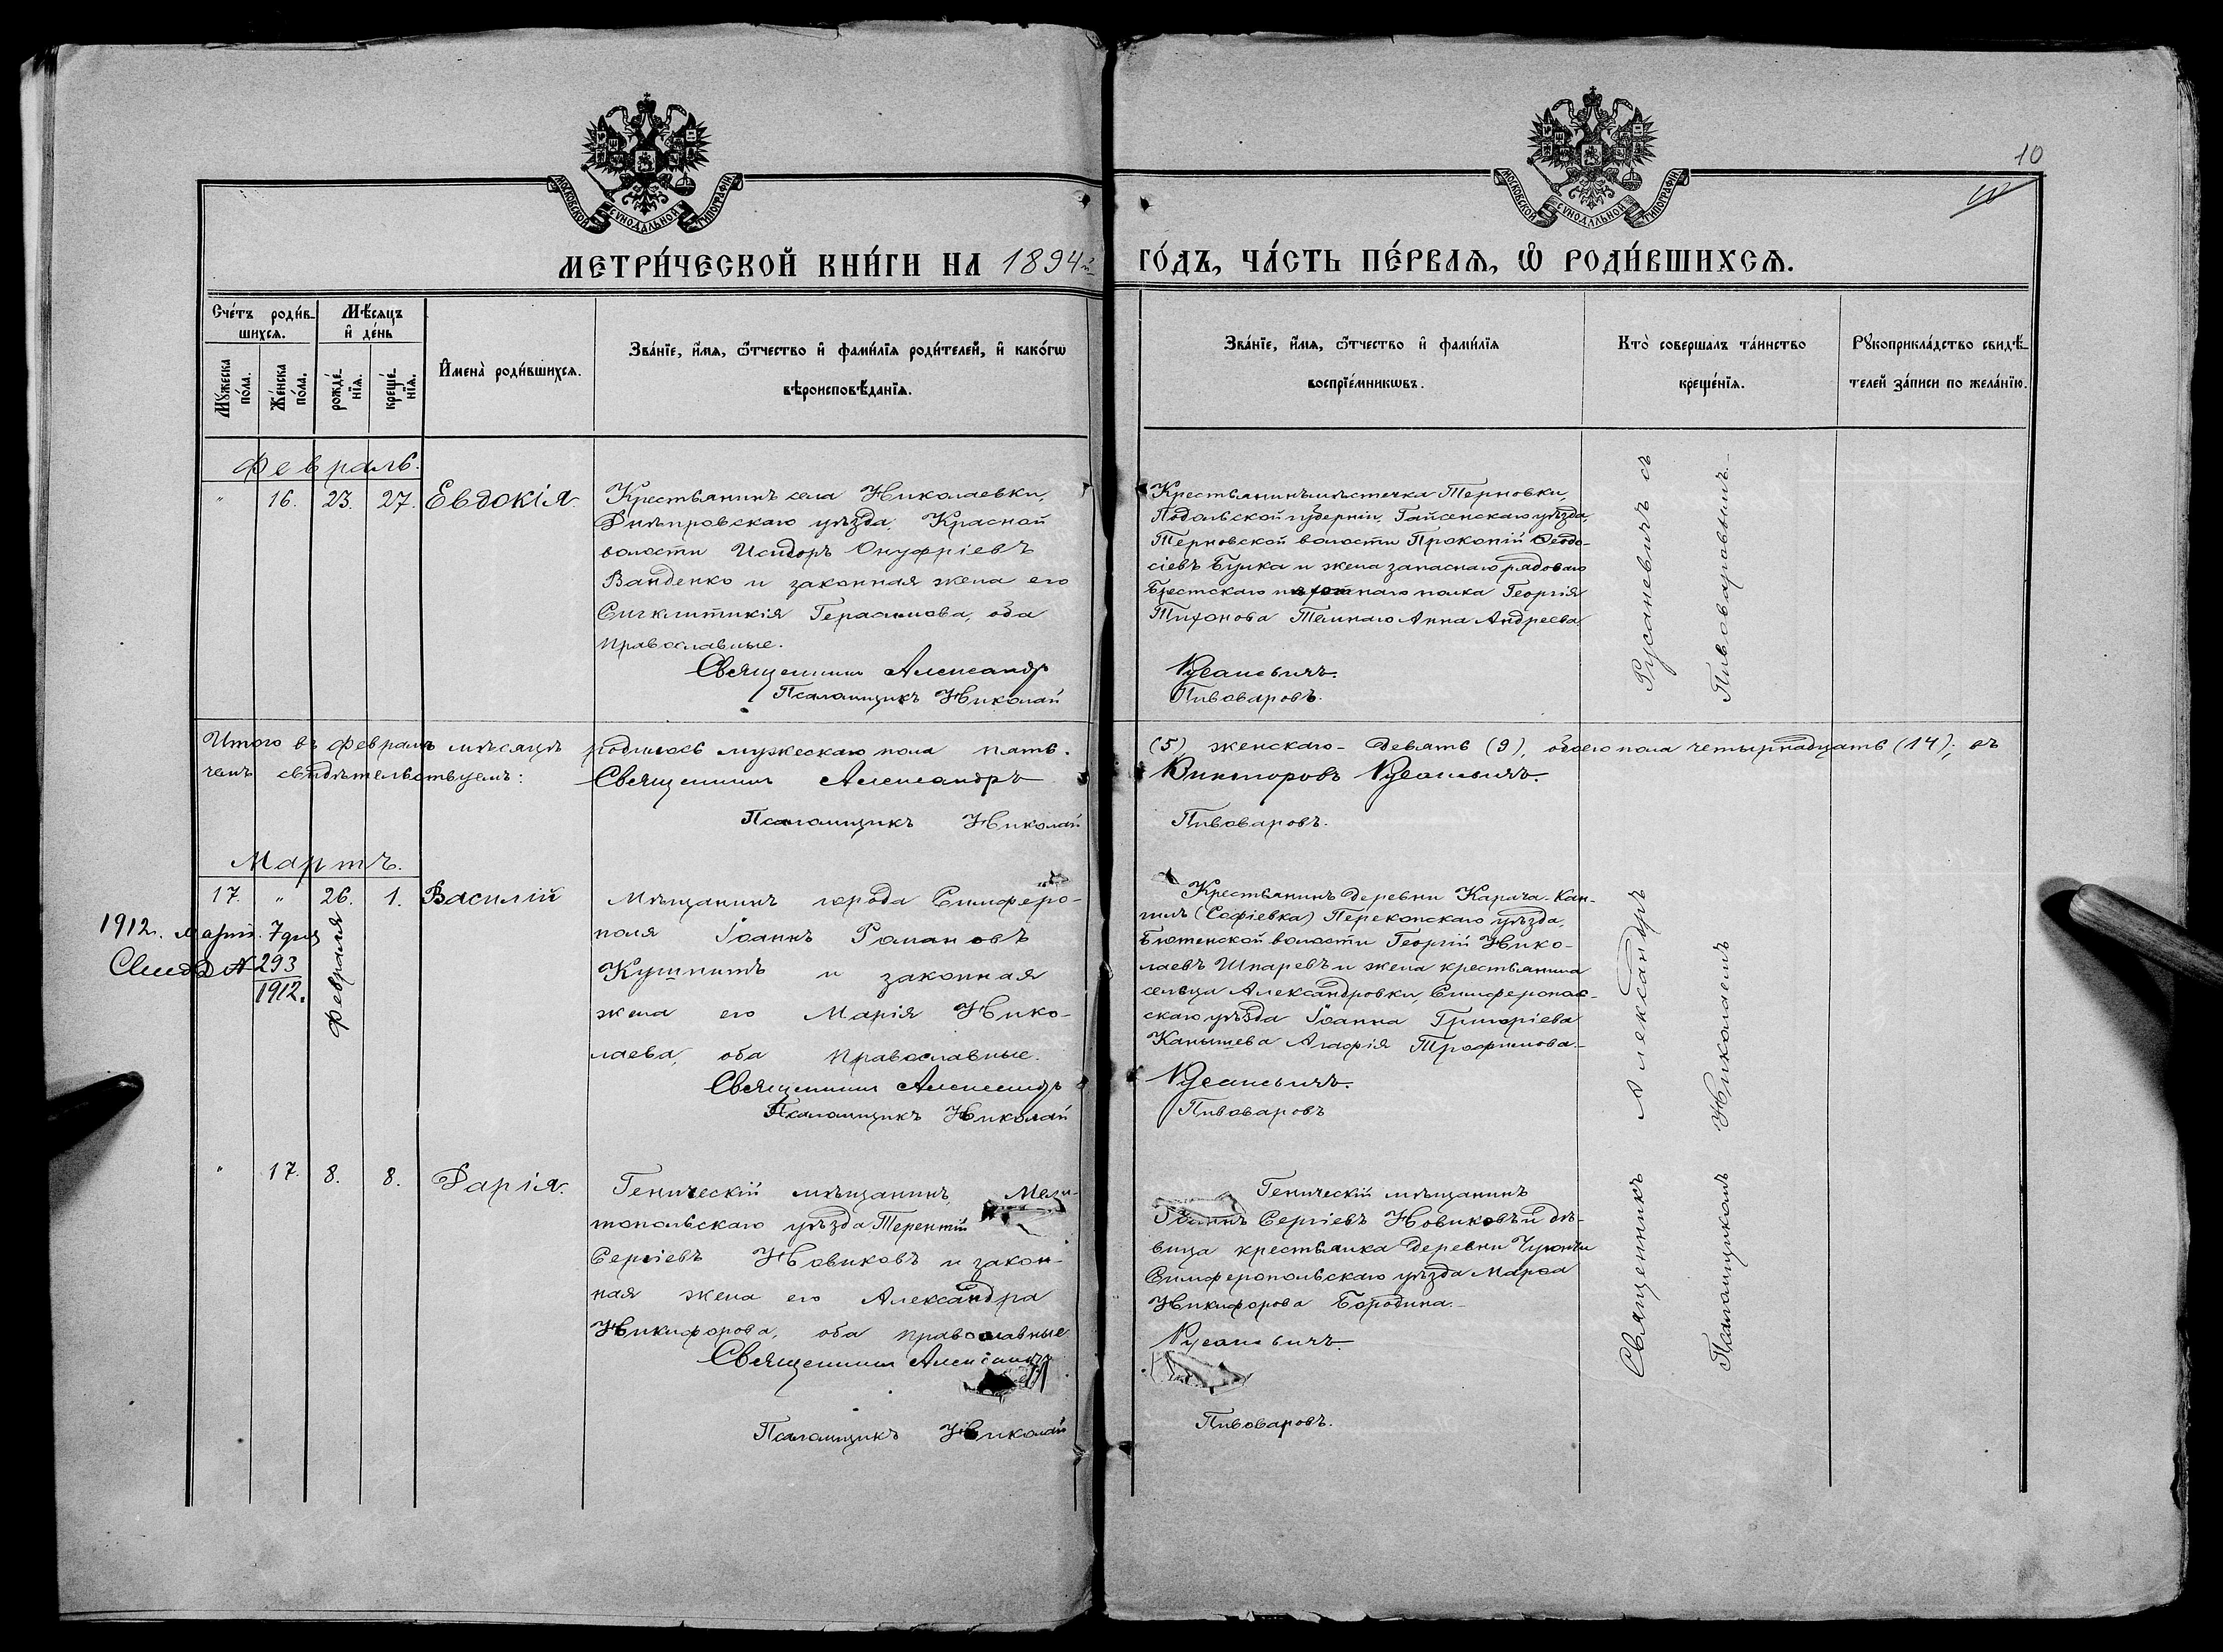 10
МОСКОВСКОЙ СУНОДАЛЬНОЙ ТИПОГРАФІИ
МОСКОВСКОЙ СУНОДАЛЬНОЙ ТИПОГРАФІИ
МЕТРИ́ЧЕСКОЙ КНИ́ГИ НА 1894й
ГО́ДЪ, ЧА́СТЬ ПЕ́РВАѦ, Ѡ РОДИ́ВШИХСѦ.
Сче́тъ роди́в-
шихсѧ.
Мѣ́сѧцъ
и҆ де́нь
Мꙋ́жеска
по́ла.
Же́нска
по́ла.
рожде́-
нїѧ.
креще́-
нїѧ.
И҆мена̀ роди́вшихсѧ.
Зва́нїе, и҆́мѧ, ѻ҆́тчество и҆ фами́лїѧ роди́телей, и҆ како́гѡ
вѣроисповѣ́данїѧ.
Зва́нїе, и҆́мѧ, ѻ҆́тчество и҆ фами́лїѧ
воспрїе́мникѡвъ.
Кто̀ соверша́лъ та́инство
креще́нїѧ.
Рꙋкоприкла́дство свидѣ́-
телей за́писи по жела́нїю.
Февраль.
" 16. 23. 27. Евдокія.
Крестьянинъ села Николаевки,
Днѣпровскаго уѣзда, Красной
волости Исидоръ Онуфріевъ
Ванденко и законная жена его
Сигклитикія Герасимова, оба
православные.
Священникъ Александр
Псаломщикъ Николай
Крестьянинъ мѣстечка Терновки,
Подольской губерніи, Гайсенскаго уѣзда,
Терновской волости Прокопій Ѳеодо-
сіевъ Буцка и жена запаснаго рядоваго
Брестскаго пѣхотнаго полка Георгія
Тихонова Темнаго Анна Андреева.
Русаневичъ.
Пивоваровъ.
Русаневичъ съ
Пивоваровымъ.
Итого въ Февралѣ мѣсяцѣ родилось мужескаго пола пять.
(5), женскаго - девять (9), обоего пола четырнадцать (14); въ
чемъ свидѣтельствуемъ:
Священникъ Александръ
Викторовъ Русаневичъ.
Псаломщикъ Николай
Пивоваровъ.
Мартъ.
17. " 26. 1. Василій
Февраля
1912г. Март. 7 дня
Свид № 293
1912.
Мѣщанинъ города Симферо-
поля Іоаннъ Романовъ
Кушнитъ и законная
жена его Марія Нико-
лаева, оба православные.
Священникъ Александръ
Псаломщикъ Николай
Крестьянинъ деревни Карача-Кан-
гилъ (Софіевка) Перекопскаго уѣзда,
Бютенской волости Георгій Нико-
лаевъ Шпаревъ и жена крестьянина
сельца Александровки, Симферополь-
скаго уѣзда Іоанна Григоріева
Канышева Агафія Трофимова.
Русаневичъ.
Пивоваровъ
" 17. 8. 8. Дарія.
Геническій мѣщанинъ, Мели-
топольскаго уѣзда Терентій
Сергіевъ Новиковъ и закон-
ная жена его Александра
Никифорова, оба православные
Священникъ Александръ
Псаломщикъ Николай
Геническій мѣщанинъ
Іоаннъ Сергіевъ Новиковъ и дѣ-
вица крестьянка деревни
Симферопольскаго уѣзда Марѳа
Никифорова Бородина.
Русаневичъ.
Пивоваровъ.
Священникъ Александръ
Псаломщикомъ Николаемъ